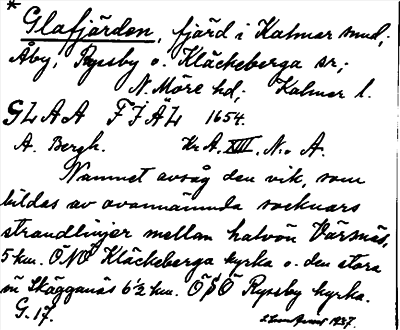 * Glafjärden, fjärd i Kalmar sund;
Åby, Ryssby o. Kläckeberga sr;
N. Möre hd; Kalmar l.
GLAA FJÄL 1654.
A. Bergh. Kr. A. XIII. N:o A.
Namnet avsåg den vik, som
bildas av ovannämnda socknars
strandlinjer mellan halvön Värsnäs,
5 km. ÖNÖ Kläckeberga kyrka o. den stora
ön Skäggenäs 6½ km. ÖSÖ Ryssby kyrka.
G. 17. 1937.